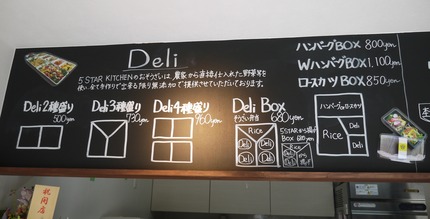 Deli
5 STAR KITCHENのおそうざいは、農家から直接仕入れた野菜等を
使い、全て手作りで出来る限り無添加で提供させていただいております。
ハンバーグBOX 800yen
WハンバーグBOX 1,100yen
ロースカツBOX 850yen
Deli 2種盛り
500yen
Deli 3種盛り
730yen
Deli 4種盛り
960yen
Deli Box
そうざい弁当 680yen
Rice
Deli
Deli
Deli
5STARから揚げ
BOX 680yen
Rice
Deli
Deli
から
揚げ
ハンバーグorロースカツ
Rice
Deli
Deli
祝開店